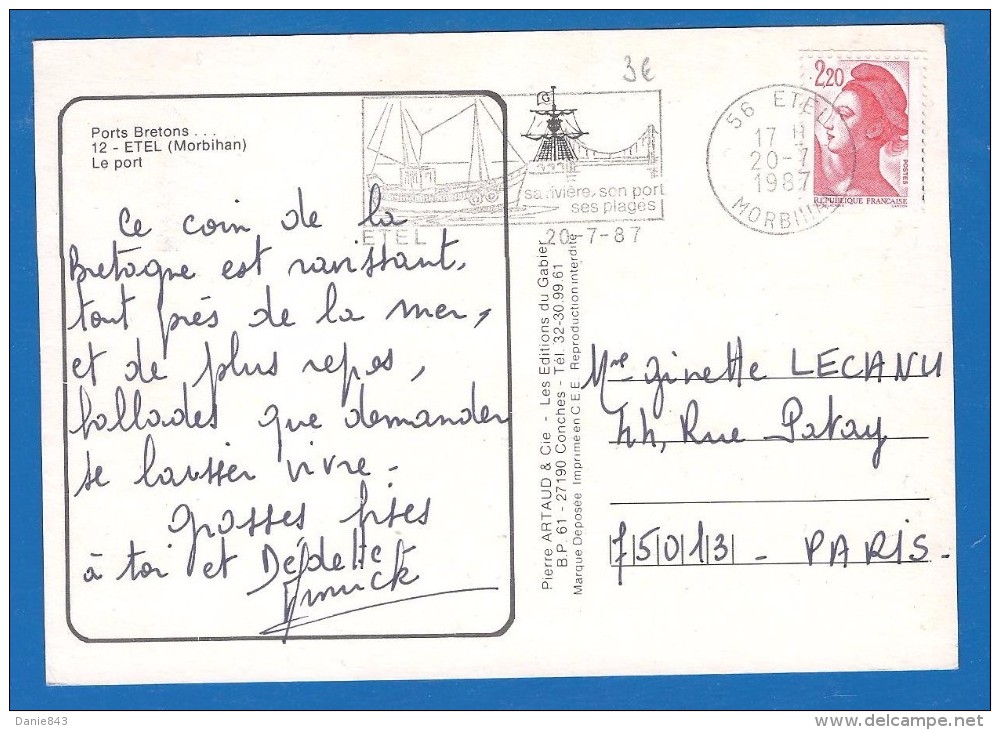 3€
Ports Bretons . . .
12 - ETEL (Morbihan)
Le port
sa rivière, son port
ses plages
ETEL
20-7-87
56 ETEL
17 H
20-7
1987
MORBIHAN
2,20
POSTES
REPUBLIQUE FRANÇAISE
Ce coin de la
Bretagne est ravissant,
tout près de la mer,
et de plus repos,
ballades que demander
se laisser vivre -
grosses bises
à toi et Dédette
Annick
Pierre ARTAUD & Cie - Les Editions du Gabier
B.P. 61 - 27190 Conches - Tél. 32-30.99.61
Marque Déposée Imprimé en C E E Reproduction interdite
Mme Ginette LECANU
44, Rue Patay
75013 - PARIS -
Danie843
delcampe.net